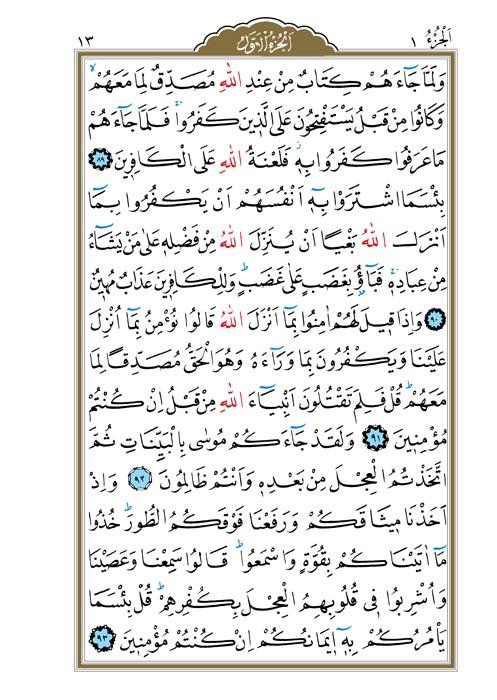 اَلْجُزْءُ ١
اَلْجُزْءُ الْاَوَّلُ
١٣
وَلَمَّا جَٓاءَهُمْ كِتَابٌ مِنْ عِنْدِ اللّٰهِ مُصَدِّقٌ لِمَا مَعَهُمْۙ
وَكَانُوا مِنْ قَبْلُ يَسْتَفْتِحُونَ عَلَى الَّذ۪ينَ كَفَرُواۚ فَلَمَّا جَٓاءَهُمْ
مَا عَرَفُوا كَفَرُوا بِه۪ۘ فَلَعْنَةُ اللّٰهِ عَلَى الْكَافِر۪ينَ ﴿٨٩﴾
بِئْسَمَا اشْتَرَوْا بِه۪ٓ اَنْفُسَهُمْ اَنْ يَكْفُرُوا بِمَٓا
اَنْزَلَ اللّٰهُ بَغْيًا اَنْ يُنَزِّلَ اللّٰهُ مِنْ فَضْلِه۪ عَلٰى مَنْ يَشَٓاءُ
مِنْ عِبَادِه۪ۚ فَبَٓاؤُ۫ بِغَضَبٍ عَلٰى غَضَبٍۜ وَلِلْكَافِر۪ينَ عَذَابٌ مُه۪ينٌ
﴿٩٠﴾ وَاِذَا ق۪يلَ لَهُمْ اٰمِنُوا بِمَٓا اَنْزَلَ اللّٰهُ قَالُوا نُؤْمِنُ بِمَٓا اُنْزِلَ
عَلَيْنَا وَيَكْفُرُونَ بِمَا وَرَٓاءَهُ وَهُوَ الْحَقُّ مُصَدِّقًا لِمَا
مَعَهُمْۜ قُلْ فَلِمَ تَقْتُلُونَ اَنْبِيَٓاءَ اللّٰهِ مِنْ قَبْلُ اِنْ كُنْتُمْ
مُؤْمِن۪ينَ ﴿٩١﴾ وَلَقَدْ جَٓاءَكُمْ مُوسٰى بِالْبَيِّنَاتِ ثُمَّ
اتَّخَذْتُمُ الْعِجْلَ مِنْ بَعْدِه۪ وَاَنْتُمْ ظَالِمُونَ ﴿٩٢﴾ وَاِذْ
اَخَذْنَا م۪يثَاقَكُمْ وَرَفَعْنَا فَوْقَكُمُ الطُّورَۜ خُذُوا
مَٓا اٰتَيْنَاكُمْ بِقُوَّةٍ وَاسْمَعُواۜ قَالُوا سَمِعْنَا وَعَصَيْنَا
وَاُشْرِبُوا ف۪ي قُلُوبِهِمُ الْعِجْلَ بِكُفْرِهِمْۜ قُلْ بِئْسَمَا
يَأْمُرُكُمْ بِه۪ٓ ا۪يمَانُكُمْ اِنْ كُنْتُمْ مُؤْمِن۪ينَ ﴿٩٣﴾